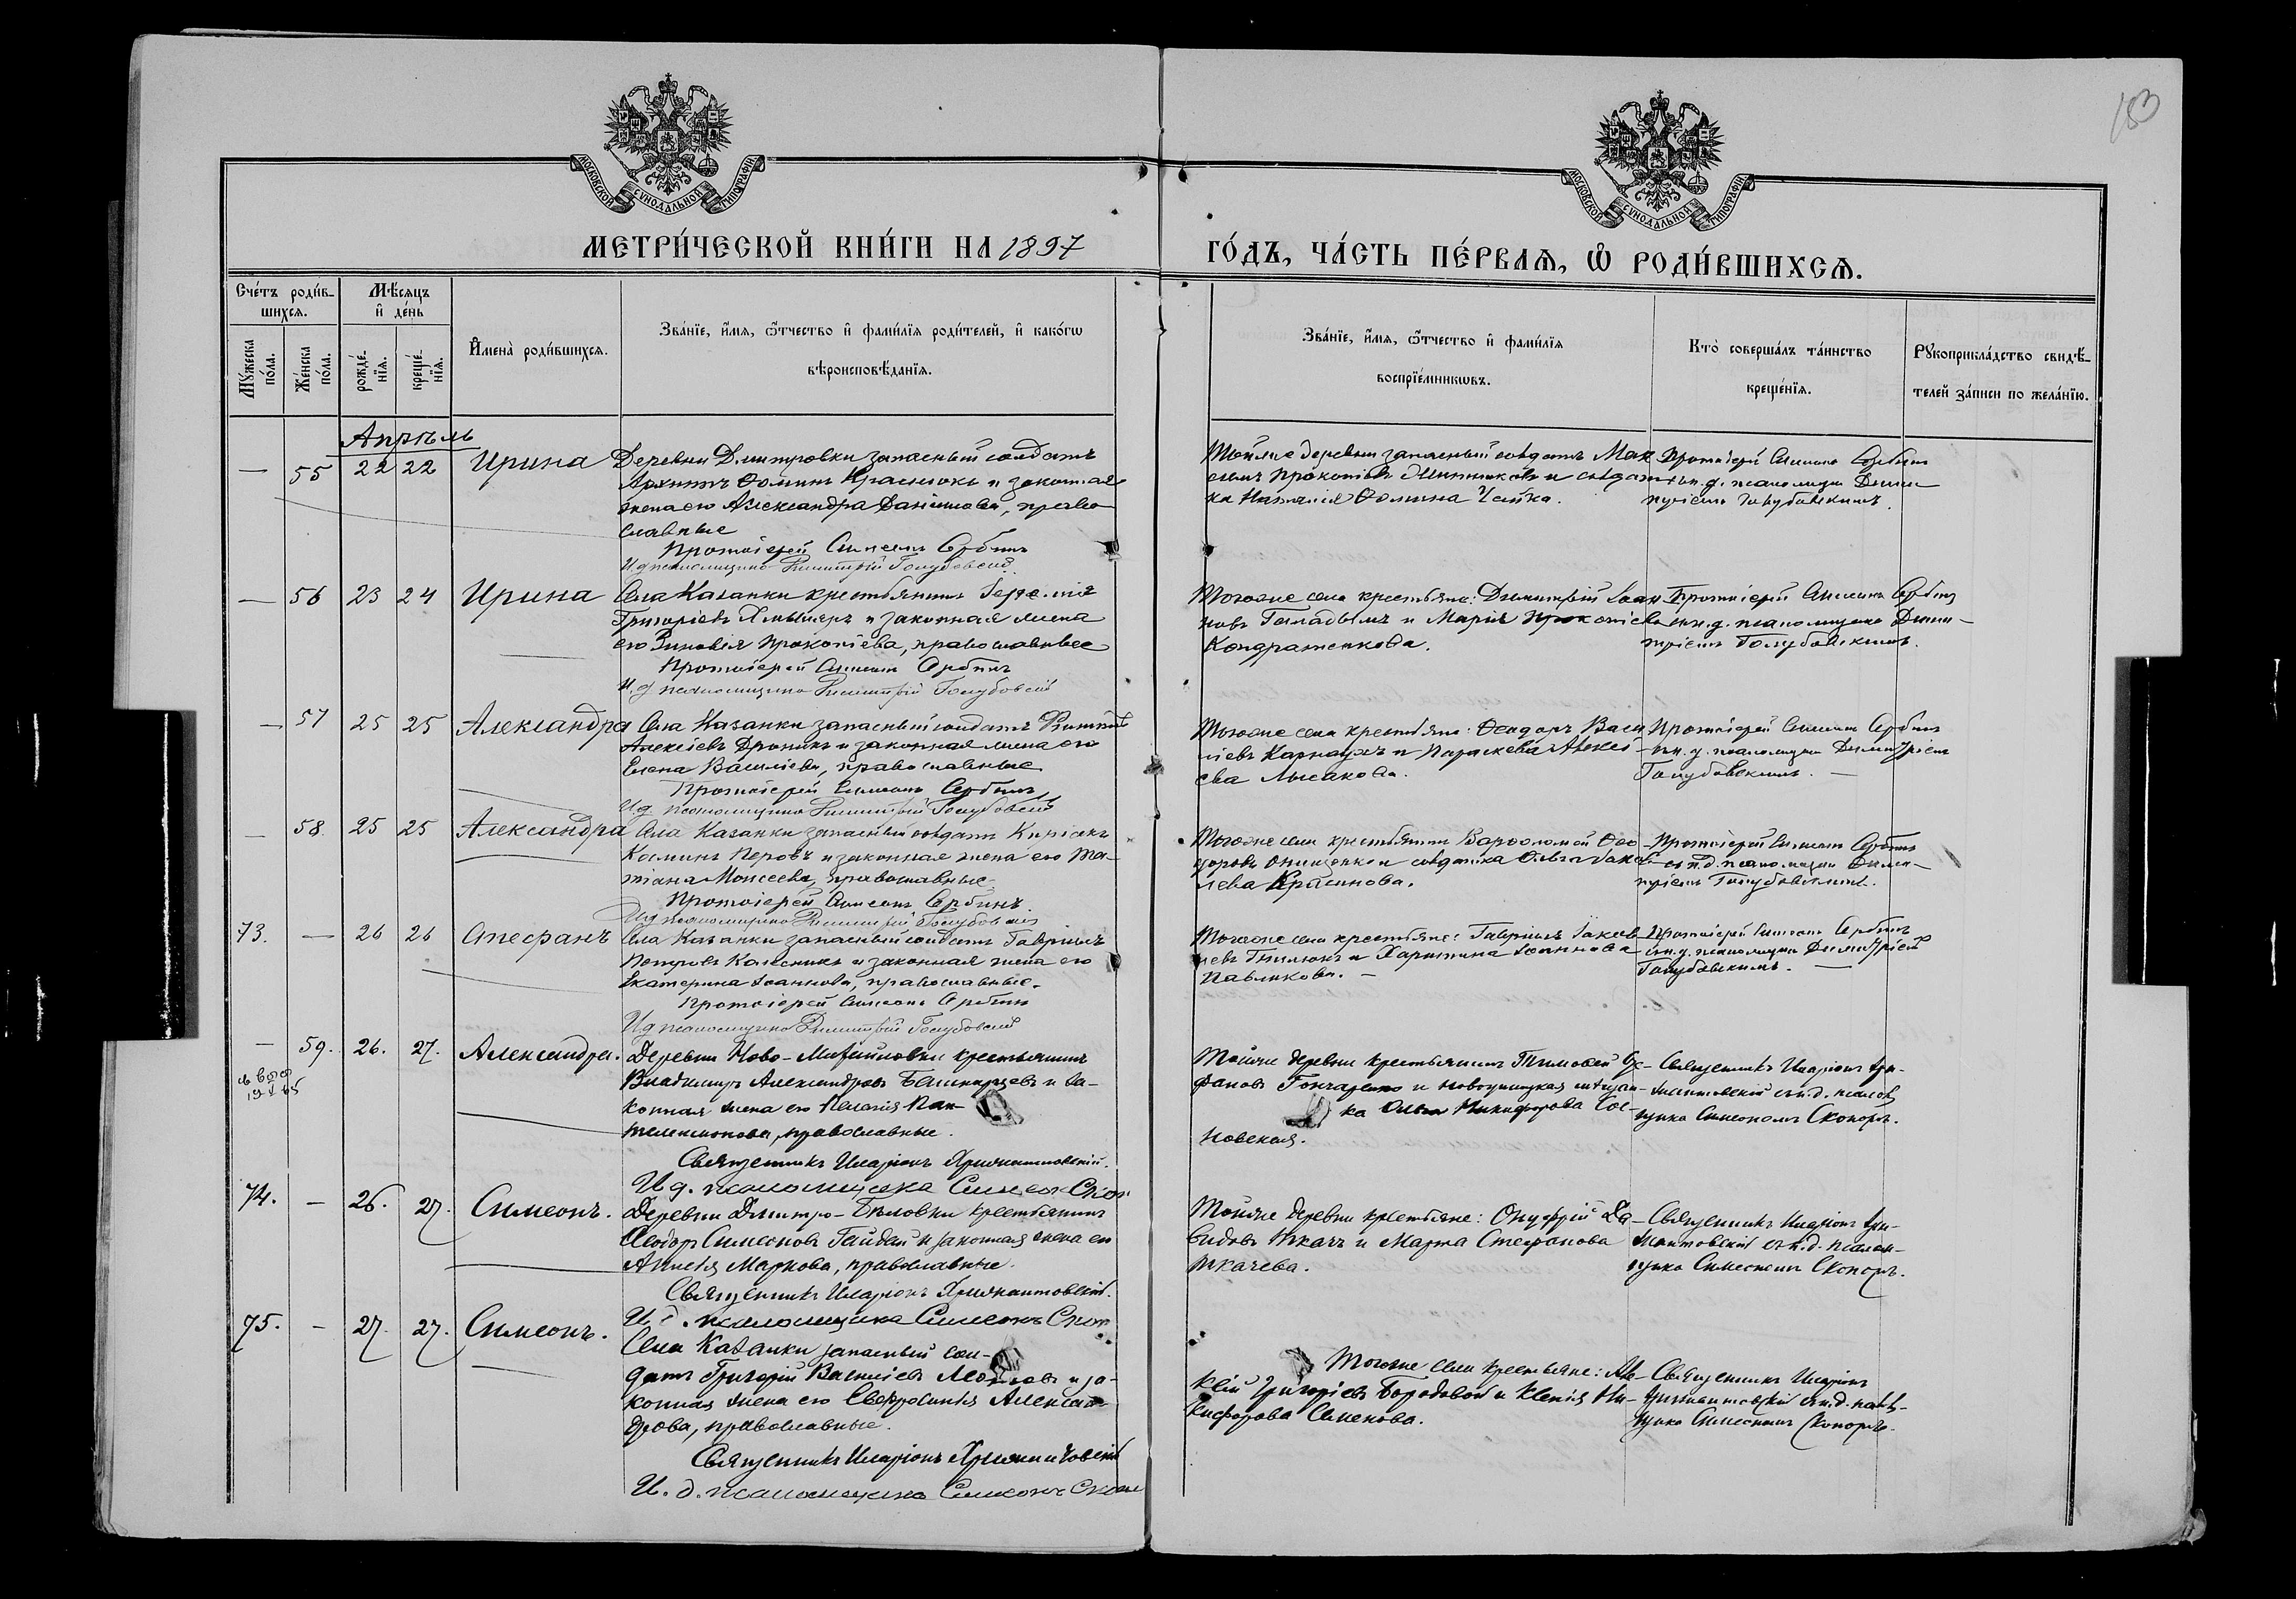 183
МОСКОВСКОЙ СУНОДАЛЬНОЙ ТИПОГРАФІИ
МОСКОВСКОЙ СУНОДАЛЬНОЙ ТИПОГРАФІИ
МЕТРИ́ЧЕСКОЙ КНИ́ГИ НА 1897
ГО́ДЪ, ЧА́СТЬ ПЕ́РВАѦ, Ѡ҆ РОДИ́ВШИХСѦ.
Сче́тъ роди́в-
шихсѧ.
Мꙋ́жеска по́ла.
Же́нска по́ла.
Мѣ́сѧцъ
и҆ де́нь
рожде́-нїѧ.
креще́-нїѧ.
И҆мена̀ роди́вшихсѧ.
Зва́нїе, и҆́мѧ, ѻ҆́тчество и҆ фами́лїѧ роди́телей, и҆ како́гѡ
вѣроисповѣ́данїѧ.
Зва́нїе, и҆́мѧ, ѻ҆́тчество и҆ фами́лїѧ
воспрїе́мникѡвъ.
Кто̀ соверша́лъ та́инство
креще́нїѧ.
Рꙋкоприкла́дство свидѣ́-
телей за́писи по жела́нїю.
Апрѣль
— 55 22 22 Ирина Деревни Дмитровки запасный солдатъ
Ѳоминъ и законная
жена его Александра Даніилова, право
славные
Протоіерей Симеонъ Сербинъ
И д псаломщика Димитрій Голубовскій
Той же деревни запасный солдатъ Мак
симъ Прокопіевъ и солдат
ка Наталія Ѳомина Чайка.
Протоіерей Симеонъ Сербинъ
съ и. д. псаломщика Дими
тріемъ Голубовскимъ.
— 56 23 24 Ирина Села Казанки крестьянинъ
Григоріевъ и законная жена
его Зиновія Прокопіева, православные
Протоіерей Симеонъ Сербинъ
И. д псаломщика Димитрій Голубовскій
Того же села крестьяне: Димитрій Іоан
новъ и Марія Прокопіева
Кондратенкова.
Протоіерей Симеонъ Сербинъ
съ и. д. псаломщика Дими-
тріемъ Голубовскимъ.
— 57 25 25 Александра Села Казанки запасный солдатъ
Алексіевъ и законная жена его
Елена Василіева, православные
Протоіерей Симеонъ Сербинъ
И д псаломщика Димитрій Голубовскій
Того же села крестьяне: Ѳеодоръ Васи
ліевъ Карнаухъ и Параскева Алексі-
ева Лысакова.
Протоіерей Симеонъ Сербинъ
съ и. д. псаломщика Димитріемъ
Голубовскимъ. —
— 58. 25 25 Александра Села Казанки запасный солдатъ Киріакъ
Косминъ Перовъ и законная жена его Та-
тіана Моисеева, православные
Протоіерей Симеонъ Сербинъ
И д псаломщика Димитрій Голубовскій
Того же села крестьянинъ Варѳоломей Ѳео
доровъ Онищенко и солдатка Ольга Іаков
лева
Протоіерей Симеонъ Сербинъ
съ и. д. псаломщика Дими-
тріемъ Голубовскимъ.
73. — 26 26 Стефанъ Села Казанки запасный солдатъ Гавріилъ
Петровъ Колесникъ и законная жена его
Екатерина Іоаннова, православные.
Протоіерей Симеонъ Сербинъ
И д псаломщика Димитрій Голубовскій
Того же села крестьяне: Гавріилъ Іаков
левъ и Харитина Іоаннова
Павликова. —
Протоіерей Симеонъ Сербинъ
съ и. д. псаломщика Димитріемъ
Голубовскимъ. —
— 59. 26. 27. Александра. Деревни Ново-Михайловки крестьянинъ
Владимиръ Александровъ Башкирцевъ и за-
конная жена его Пелагія Пан-
телеимонова, православные.
Священникъ Иларіонъ
И д. псаломщика Симеонъ
Той же деревни крестьянинъ Тимоѳей Сте-
фановъ Гончаренко и
ка Ольга Никифорова Сос-
новская.
Священникъ Иларіонъ
съ и. д. псалом
щика Симеономъ Скопоръ.
74. — 26. 27. Симеонъ. Деревни Дмитро-Бѣловки крестьянинъ
Ѳеодоръ Симеоновъ Гайдай и законная жена его
Маркова, православные.
Священникъ Иларіонъ
И д. псаломщика Симеонъ
Той же деревни крестьяне: Онуфрій Да-
видовъ Ткачъ и Марѳа Стефанова
Ткачева.
Священникъ Иларіонъ
съ и. д. псалом-
щика Симеономъ Скопоръ.
75. — 27. 27. Симеонъ. Села Казанки запасный сол-
датъ Григорій Василіевъ и за-
конная жена его Евфросинія Александ-
рова, православные.
Священникъ Иларіонъ
И. д. псаломщика Симеонъ
Того же села крестьяне: Але-
ксій Григоріевъ Бородовой и Ксенія Ни-
кифорова Семенова.
Священникъ Иларіонъ
съ и. д. псалом-
щика Симеономъ Скопоръ.